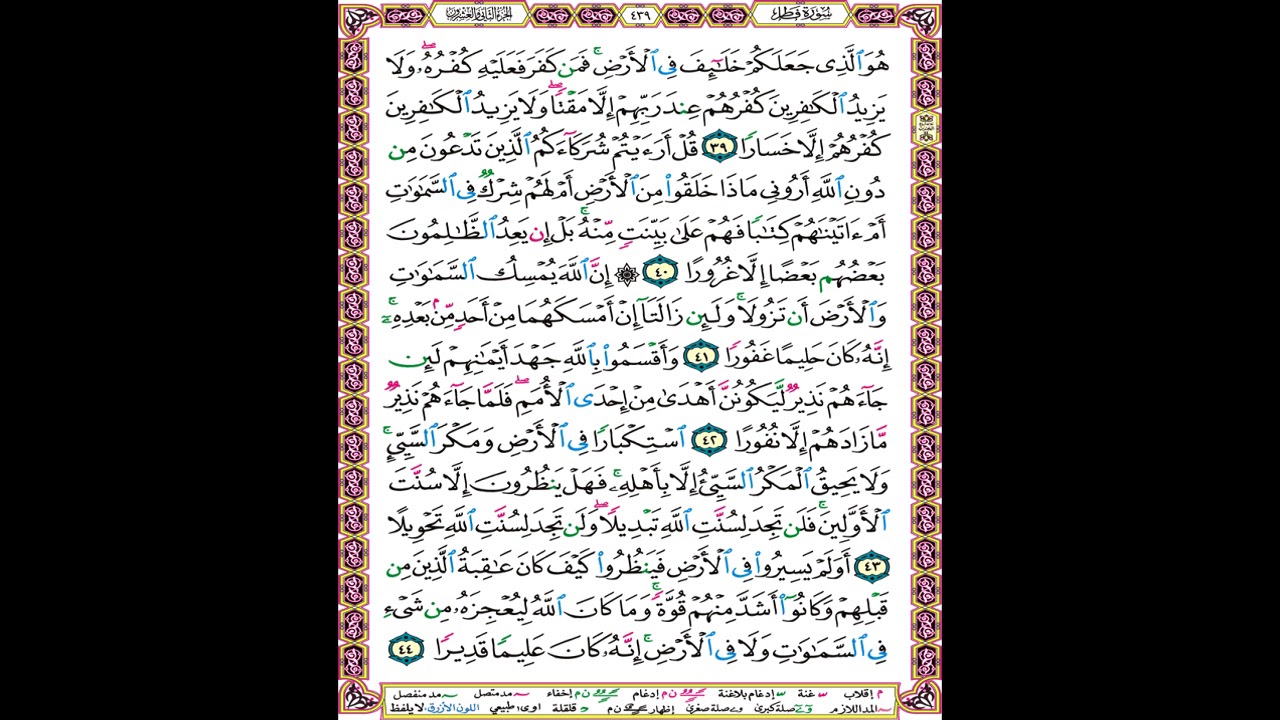 سُورَةُ فَاطِر
٤٣٩
الجزء الثاني والعشرون
هُوَ ٱلَّذِى جَعَلَكُمْ خَلَـٰٓئِفَ فِى ٱلْأَرْضِ ۚ فَمَن كَفَرَ فَعَلَيْهِ كُفْرُهُۥ ۖ وَلَا
يَزِيدُ ٱلْكَـٰفِرِينَ كُفْرُهُمْ عِندَ رَبِّهِمْ إِلَّا مَقْتًا ۖ وَلَا يَزِيدُ ٱلْكَـٰفِرِينَ
كُفْرُهُمْ إِلَّا خَسَارًا ٣٩ قُلْ أَرَءَيْتُمْ شُرَكَآءَكُمُ ٱلَّذِينَ تَدْعُونَ مِن
دُونِ ٱللَّهِ أَرُونِى مَاذَا خَلَقُوا۟ مِنَ ٱلْأَرْضِ أَمْ لَهُمْ شِرْكٌ فِى ٱلسَّمَـٰوَٰتِ
أَمْ ءَاتَيْنَـٰهُمْ كِتَـٰبًا فَهُمْ عَلَىٰ بَيِّنَتٍ مِّنْهُ ۚ بَلْ إِن يَعِدُ ٱلظَّـٰلِمُونَ
بَعْضُهُم بَعْضًا إِلَّا غُرُورًا ٤٠ ۞ إِنَّ ٱللَّهَ يُمْسِكُ ٱلسَّمَـٰوَٰتِ
وَٱلْأَرْضَ أَن تَزُولَا ۚ وَلَئِن زَالَتَآ إِنْ أَمْسَكَهُمَا مِنْ أَحَدٍ مِّنۢ بَعْدِهِۦٓ ۚ
إِنَّهُۥ كَانَ حَلِيمًا غَفُورًا ٤١ وَأَقْسَمُوا۟ بِٱللَّهِ جَهْدَ أَيْمَـٰنِهِمْ لَئِن
جَآءَهُمْ نَذِيرٌ لَّيَكُونُنَّ أَهْدَىٰ مِنْ إِحْدَى ٱلْأُمَمِ ۖ فَلَمَّا جَآءَهُمْ نَذِيرٌ
مَّا زَادَهُمْ إِلَّا نُفُورًا ٤٢ ٱسْتِكْبَارًا فِى ٱلْأَرْضِ وَمَكْرَ ٱلسَّيِّئِ ۚ
وَلَا يَحِيقُ ٱلْمَكْرُ ٱلسَّيِّئُ إِلَّا بِأَهْلِهِۦ ۚ فَهَلْ يَنظُرُونَ إِلَّا سُنَّتَ
ٱلْأَوَّلِينَ ۚ فَلَن تَجِدَ لِسُنَّتِ ٱللَّهِ تَبْدِيلًا ۖ وَلَن تَجِدَ لِسُنَّتِ ٱللَّهِ تَحْوِيلًا
٤٣ أَوَلَمْ يَسِيرُوا۟ فِى ٱلْأَرْضِ فَيَنظُرُوا۟ كَيْفَ كَانَ عَـٰقِبَةُ ٱلَّذِينَ مِن
قَبْلِهِمْ وَكَانُوٓا۟ أَشَدَّ مِنْهُمْ قُوَّةً ۚ وَمَا كَانَ ٱللَّهُ لِيُعْجِزَهُۥ مِن شَىْءٍ
فِى ٱلسَّمَـٰوَٰتِ وَلَا فِى ٱلْأَرْضِ ۚ إِنَّهُۥ كَانَ عَلِيمًا قَدِيرًا ٤٤
م إقلاب غنة إدغام بلاغنة ن م إدغام ن م إخفاء مد متصل مد منفصل
المد اللازم صلة كبرى صلة صغرى إظهار ن م قلقلة اوى: طبيعي اللون الأزرق: لا يلفظ